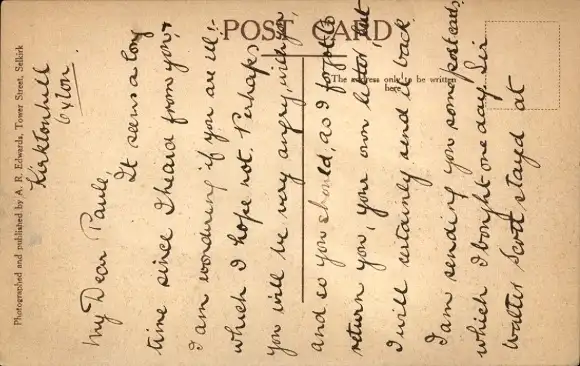 POST CARD
The address only to be written
here
Photographed and published by A. R. Edwards, Tower Street, Selkirk
Kirktonhill
Oxton.
My Dear Paule,
It seems a long
time since I heard from you, &
I am wondering if you are ill:-
which I hope not. Perhaps
you will be very angry, with me,
and so you should, as I forgot to
return you, your own letter, but
I will certainly send it back
I am sending you some post cards
which I bought one day. Sir
Walter Scott stayed at